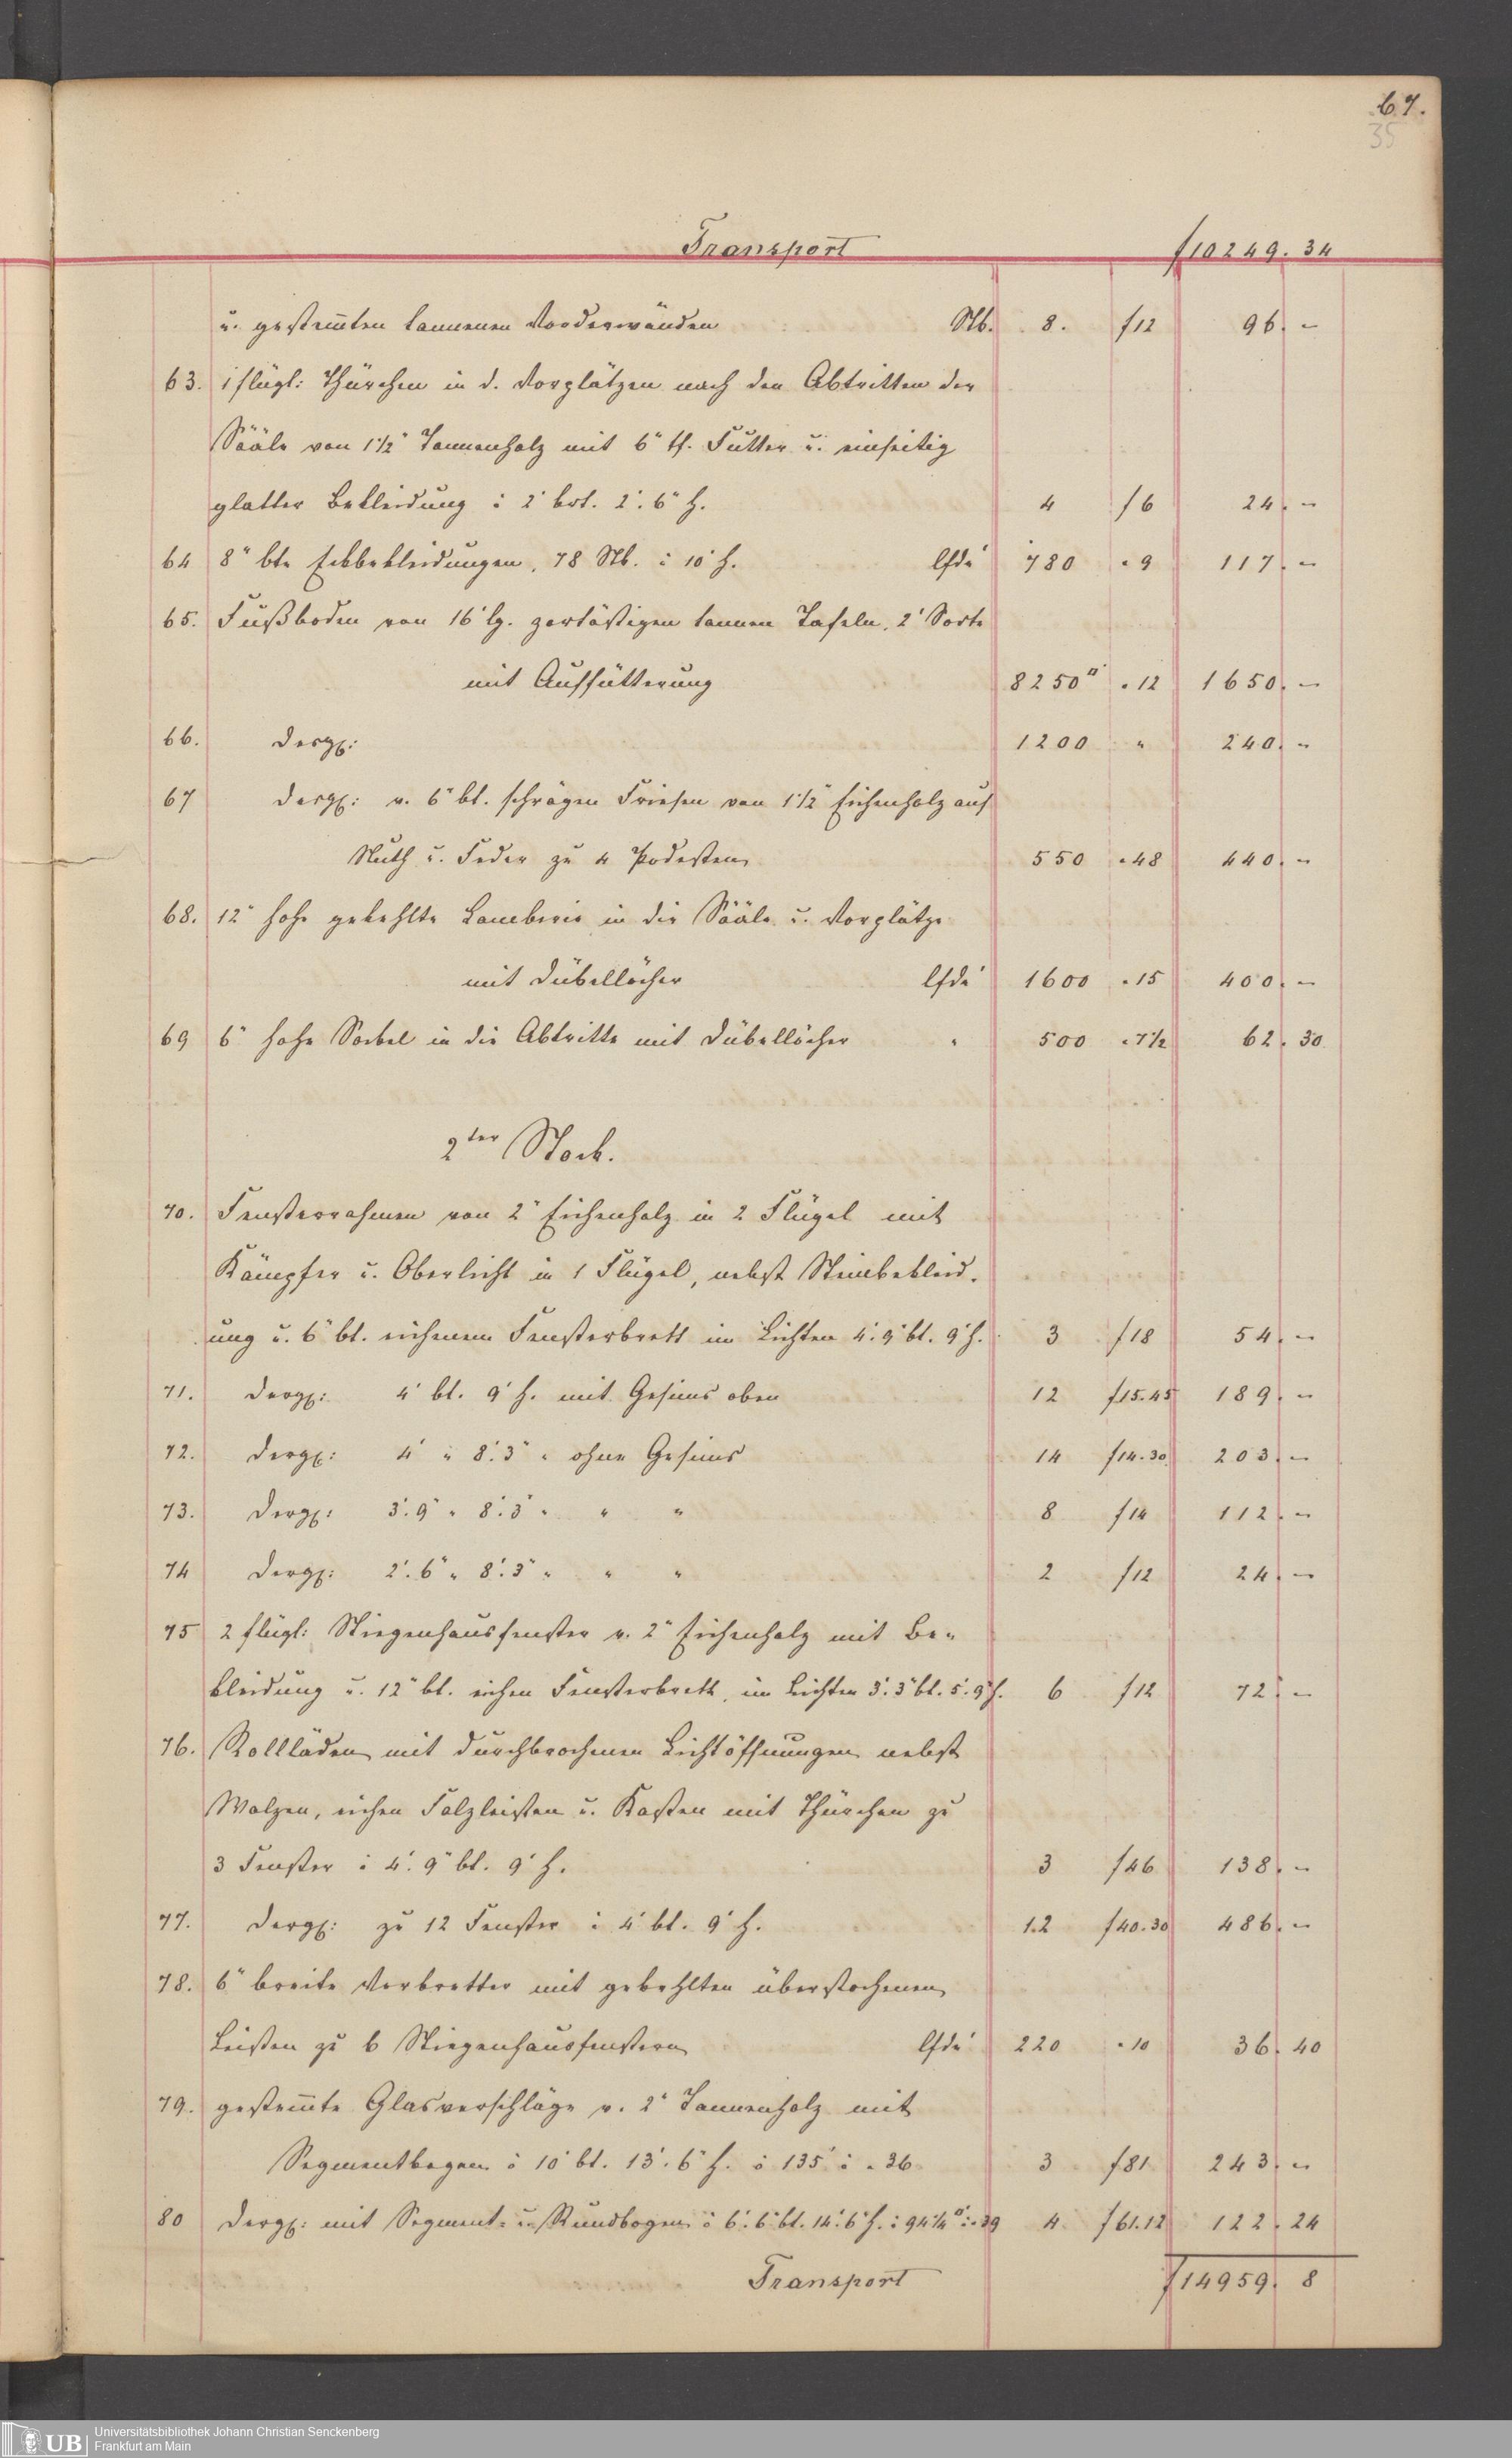 67.
35
Transport f 10249. 34
u. gestemten tannenen Vorderwänden Stk. 8. f 12 96. –
63. 1 flügl: Thürchen in d. Vorplätzen nach den Abtritten der
Sääle von 1 1/2" Tannenholz mit 6" tf. Futter u. einseitig
glatter Bekleidung à 2' brt. 2'. 6" h. 4 f 6 24. –
64 8" bte Eckbekleidungen, 78 Stk. à 10' h. lfde' 780 " 9 117. –
65. Fußboden von 16' lg. tannen Tafeln, 2' Sorte
mit Auffütterung 8250□' " 12 1650. –
66. dergl: 1200 " 240. –
67 dergl: v. 6" bt. schrägen Friesen von 1 1/2" Eichenholz auf
Nuth u. Feder zu 4 Podesten 550 " 48 440. –
68. 12" hohe gekehlte Lamberie in die Sääle u. Vorplätze
mit Dübellöcher lfde' 1600 " 15 400. –
69 6" hohe Sockel in die Abtritte mit Dübellöcher " 500 " 7 1/2 62. 30
2ter Stock.
70. Fensterrahmen von 2" Eichenholz in 2 Flügel mit
Kämpfer u. Oberlicht in 1 Flügel, nebst Steinbekleid-
ung u. 6" bt. eichenem Fensterbrett im Lichten 4'. 9" bt. 9' h. 3 f 18 54. –
71. dergl: 4' bt. 9' h. mit Gesims oben 12 f 15.45 189. –
72. dergl: 4' " 8'. 3" " ohne Gesims 14 f 14.30 203. –
73. dergl: 3'. 9" " 8'. 3" " " " 8 f 14 112. –
74 dergl: 2'. 6" " 8'. 3" " " " 2 f 12 24. –
75 2 flügl: Stiegenhausfenster v. 2" Eichenholz mit Be-
kleidung u. 12" bt. eichen Fensterbrett, im Lichten 3'. 3" bt. 5'. 9" h. 6 f 12 72. –
76. Rollläden mit durchbrochenen Lichtöffnungen nebst
Walzen, eichen Falzleisten u. Kasten mit Thürchen zu
3 Fenster à 4'. 9" bt. 9' h. 3 f 46 138. –
77. dergl: zu 12 Fenster à 4' bt. 9' h. 12 f 40.30 486. –
78. 6" breite Verbretter mit gekehlten überstochenen
Leisten zu 6 Stiegenhausfenstern lfde' 220 " 10 36. 40
79. gestemte Glasverschläge v. 2" Tannenholz mit
Segmentbogen à 10' bt. 13'. 6" h. à 135' à " 36 3 f 81 243. –
80 dergl: mit Segment- u. Rundbogen à 6'. 6" bt. 14'. 6" h. à 94 1/4□' à " 39 4 f 61.12 122. 24
Transport f 14959. 8
UB Universitätsbibliothek Johann Christian Senckenberg
Frankfurt am Main